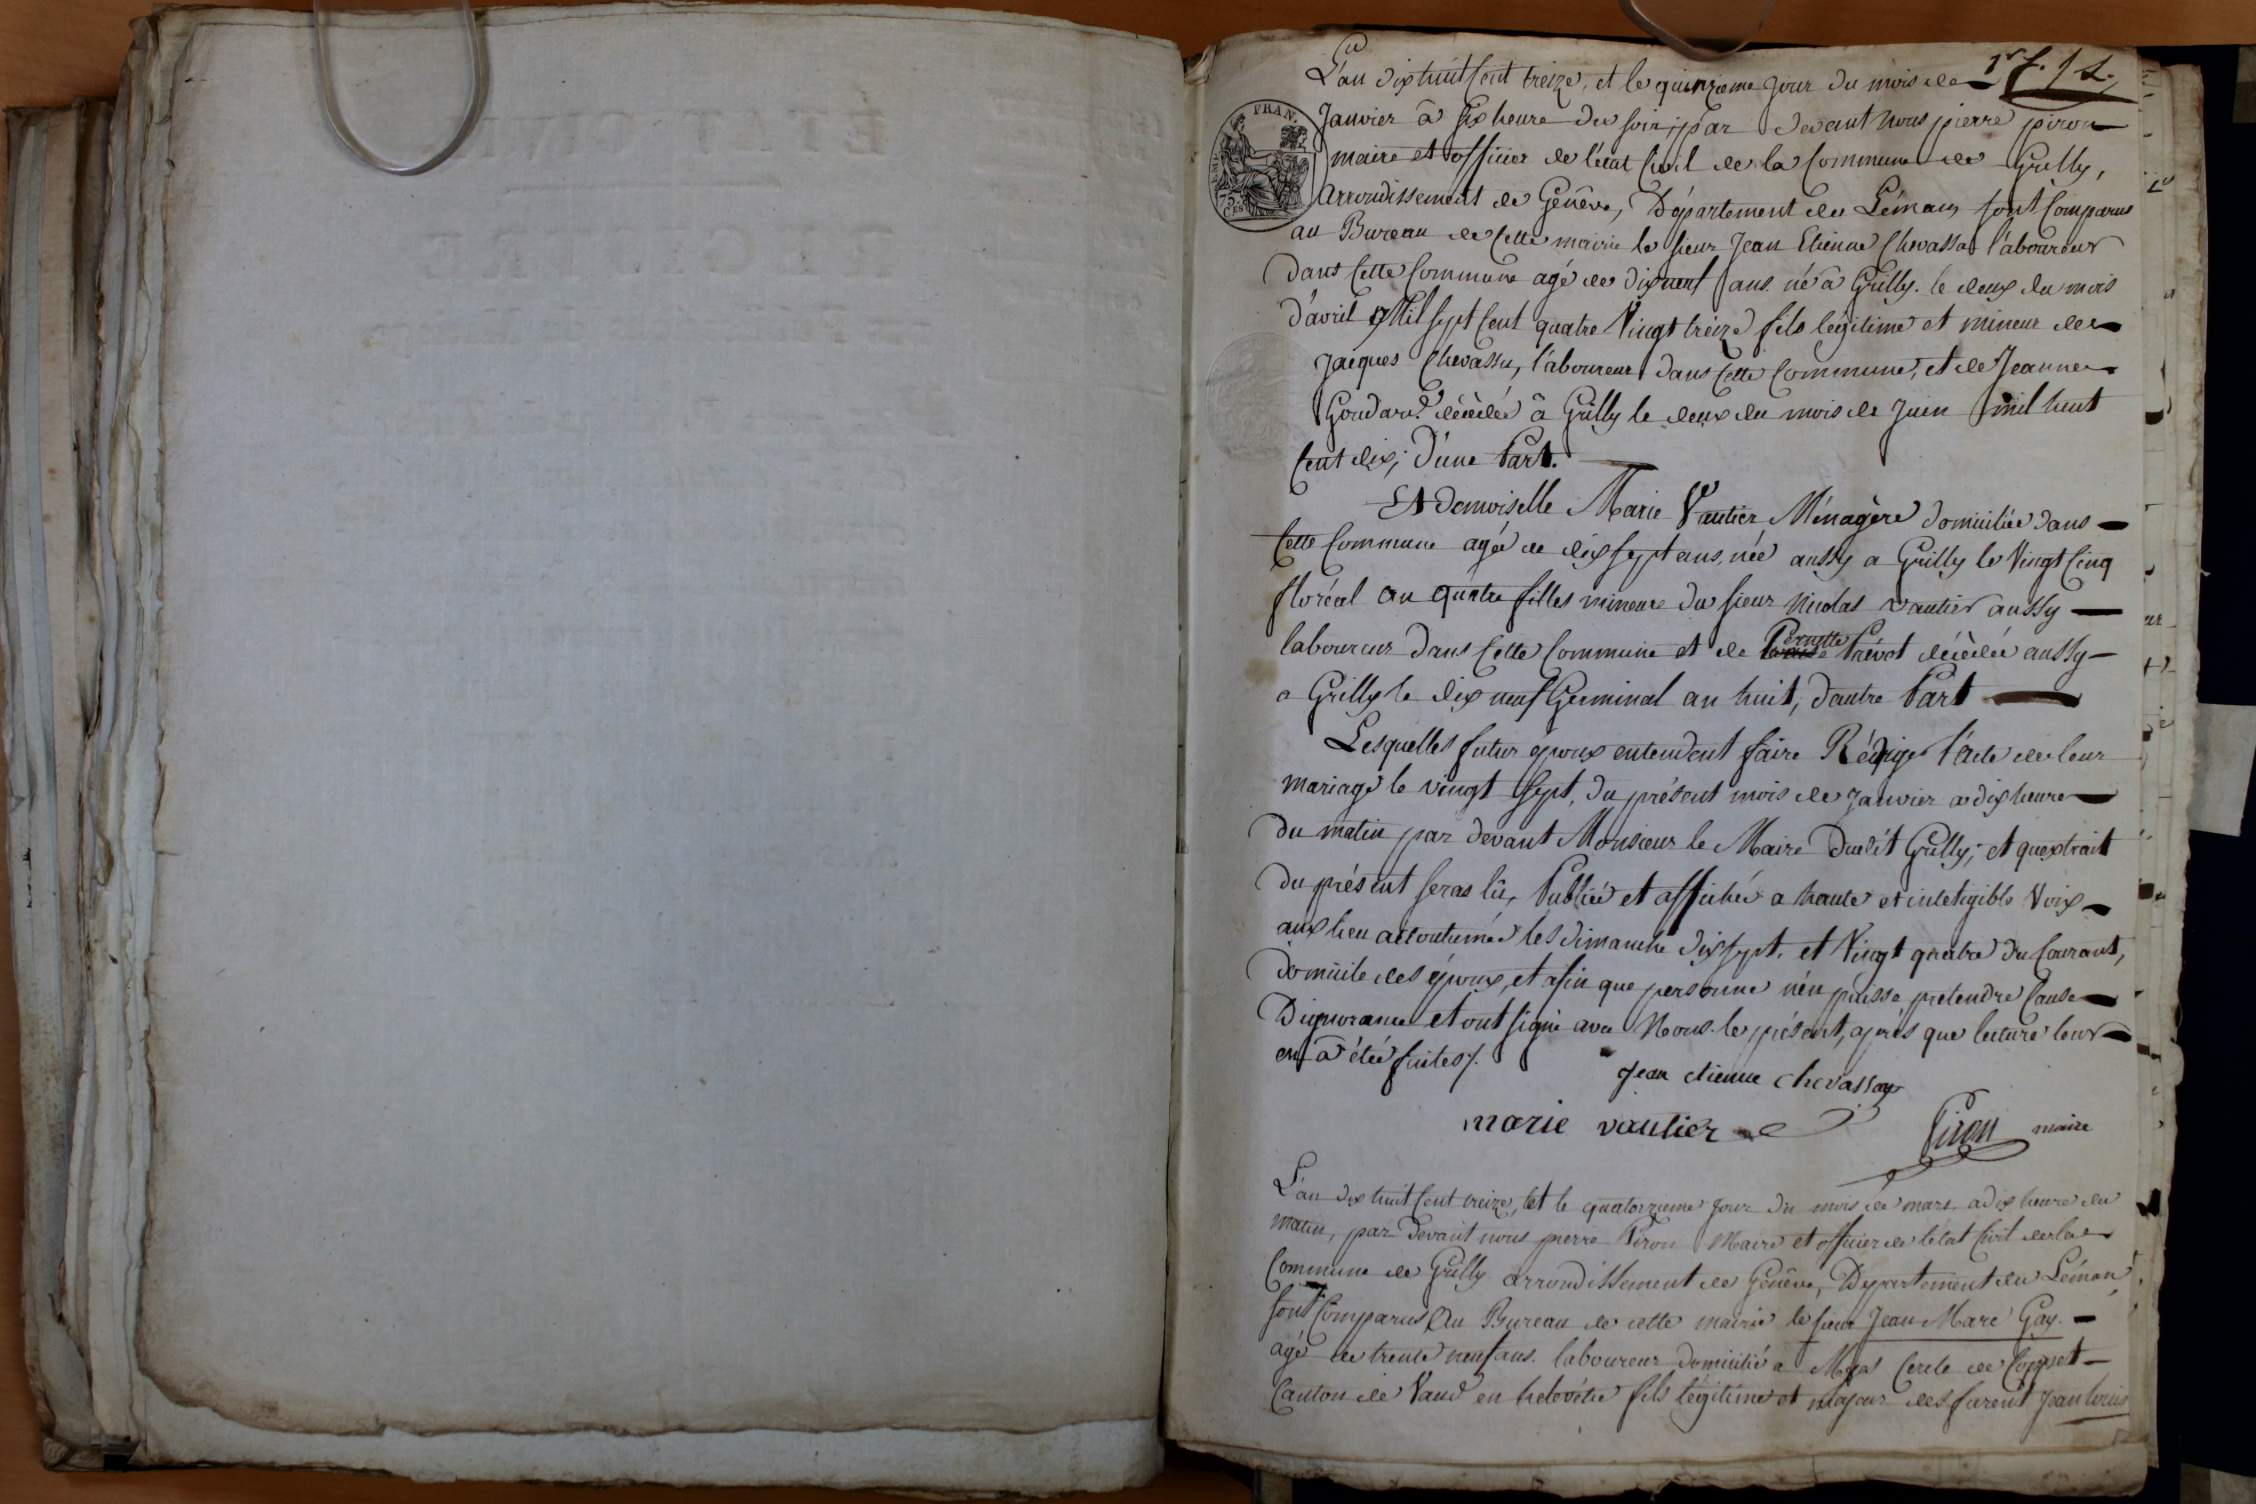 1er f. 1 d.
L'an dix huit Cent treize, et le quinzieme Jour du mois de
Janvier â six heure du soir, par devant Nous pierre piron
maire et officier de l'état Civil de la Commune de Grilly,
Arrondissement de Genêve, Département du Léman, sont Comparus
au Bureau de Cette mairie le sieur Jean Etienne Chevassu l'aboureur
Dans Cette Commune agé de dixneuf ans. né â Grilly. le deux du mois
D'avril Mil sept Cent quatre Vingt treize fils légitime et mineur de
Jacques Chevassu, l'aboureur Dans Cette Commune, et de Jeanne
Goudard décèdée â Grilly le deux du mois de Juin mil huit
Cent dix; D'une Part.
Et demoiselle Marie Vautier Ménagère Domiciliée Dans
Cette Commune agée de dix sept ans, née aussy a Grilly le Vingt Cinq
floréal an quatre filles mineure du sieur Nicolas vautier aussy
laboureur Dans Cette Commune et de Pernette Prévot décèdée aussy
a Grilly le dix neuf Germinal an huit, d'autre Part
Lesquelles futur époux entendent faire Rédiger l'acte de leur
mariage le vingt sept, du présent mois de Janvier a dix heure
Du matin par devant Monsieur le Maire dudit Grilly; et qu'extrait
Du présent seras lû, Publiée et affichée a haute et inteligible Voix
aux lieu accoutumée les dimanche dix sept. et Vingt quatre du Courant,
Domicile des époux, et afin que personne n'én puisse prétendre Cause
D'ignorance et ont signé avec Nous. le présent, après que lecture leur
en â étée faites/.
Jean etienne chevassu
marie vautier
Piron maire
L'an dix huit Cent treize, et le quatorzieme Jour du mois de mars, a dix heure du
matin, par Devant nous pierre Piron Maire et officier de l'état Civil de la
Commune de Grilly arrondissement de Genêve, Département du Léman,
sont Comparus Au Bureau de cette mairie le sieur Jean Marc Gay.
agé de trente neuf ans. laboureur domicilié a Mies Cercle de Coppet
Canton de Vaud en helvétie fils légitime et majeur des furent Jean louis
FRAN.
75
CES